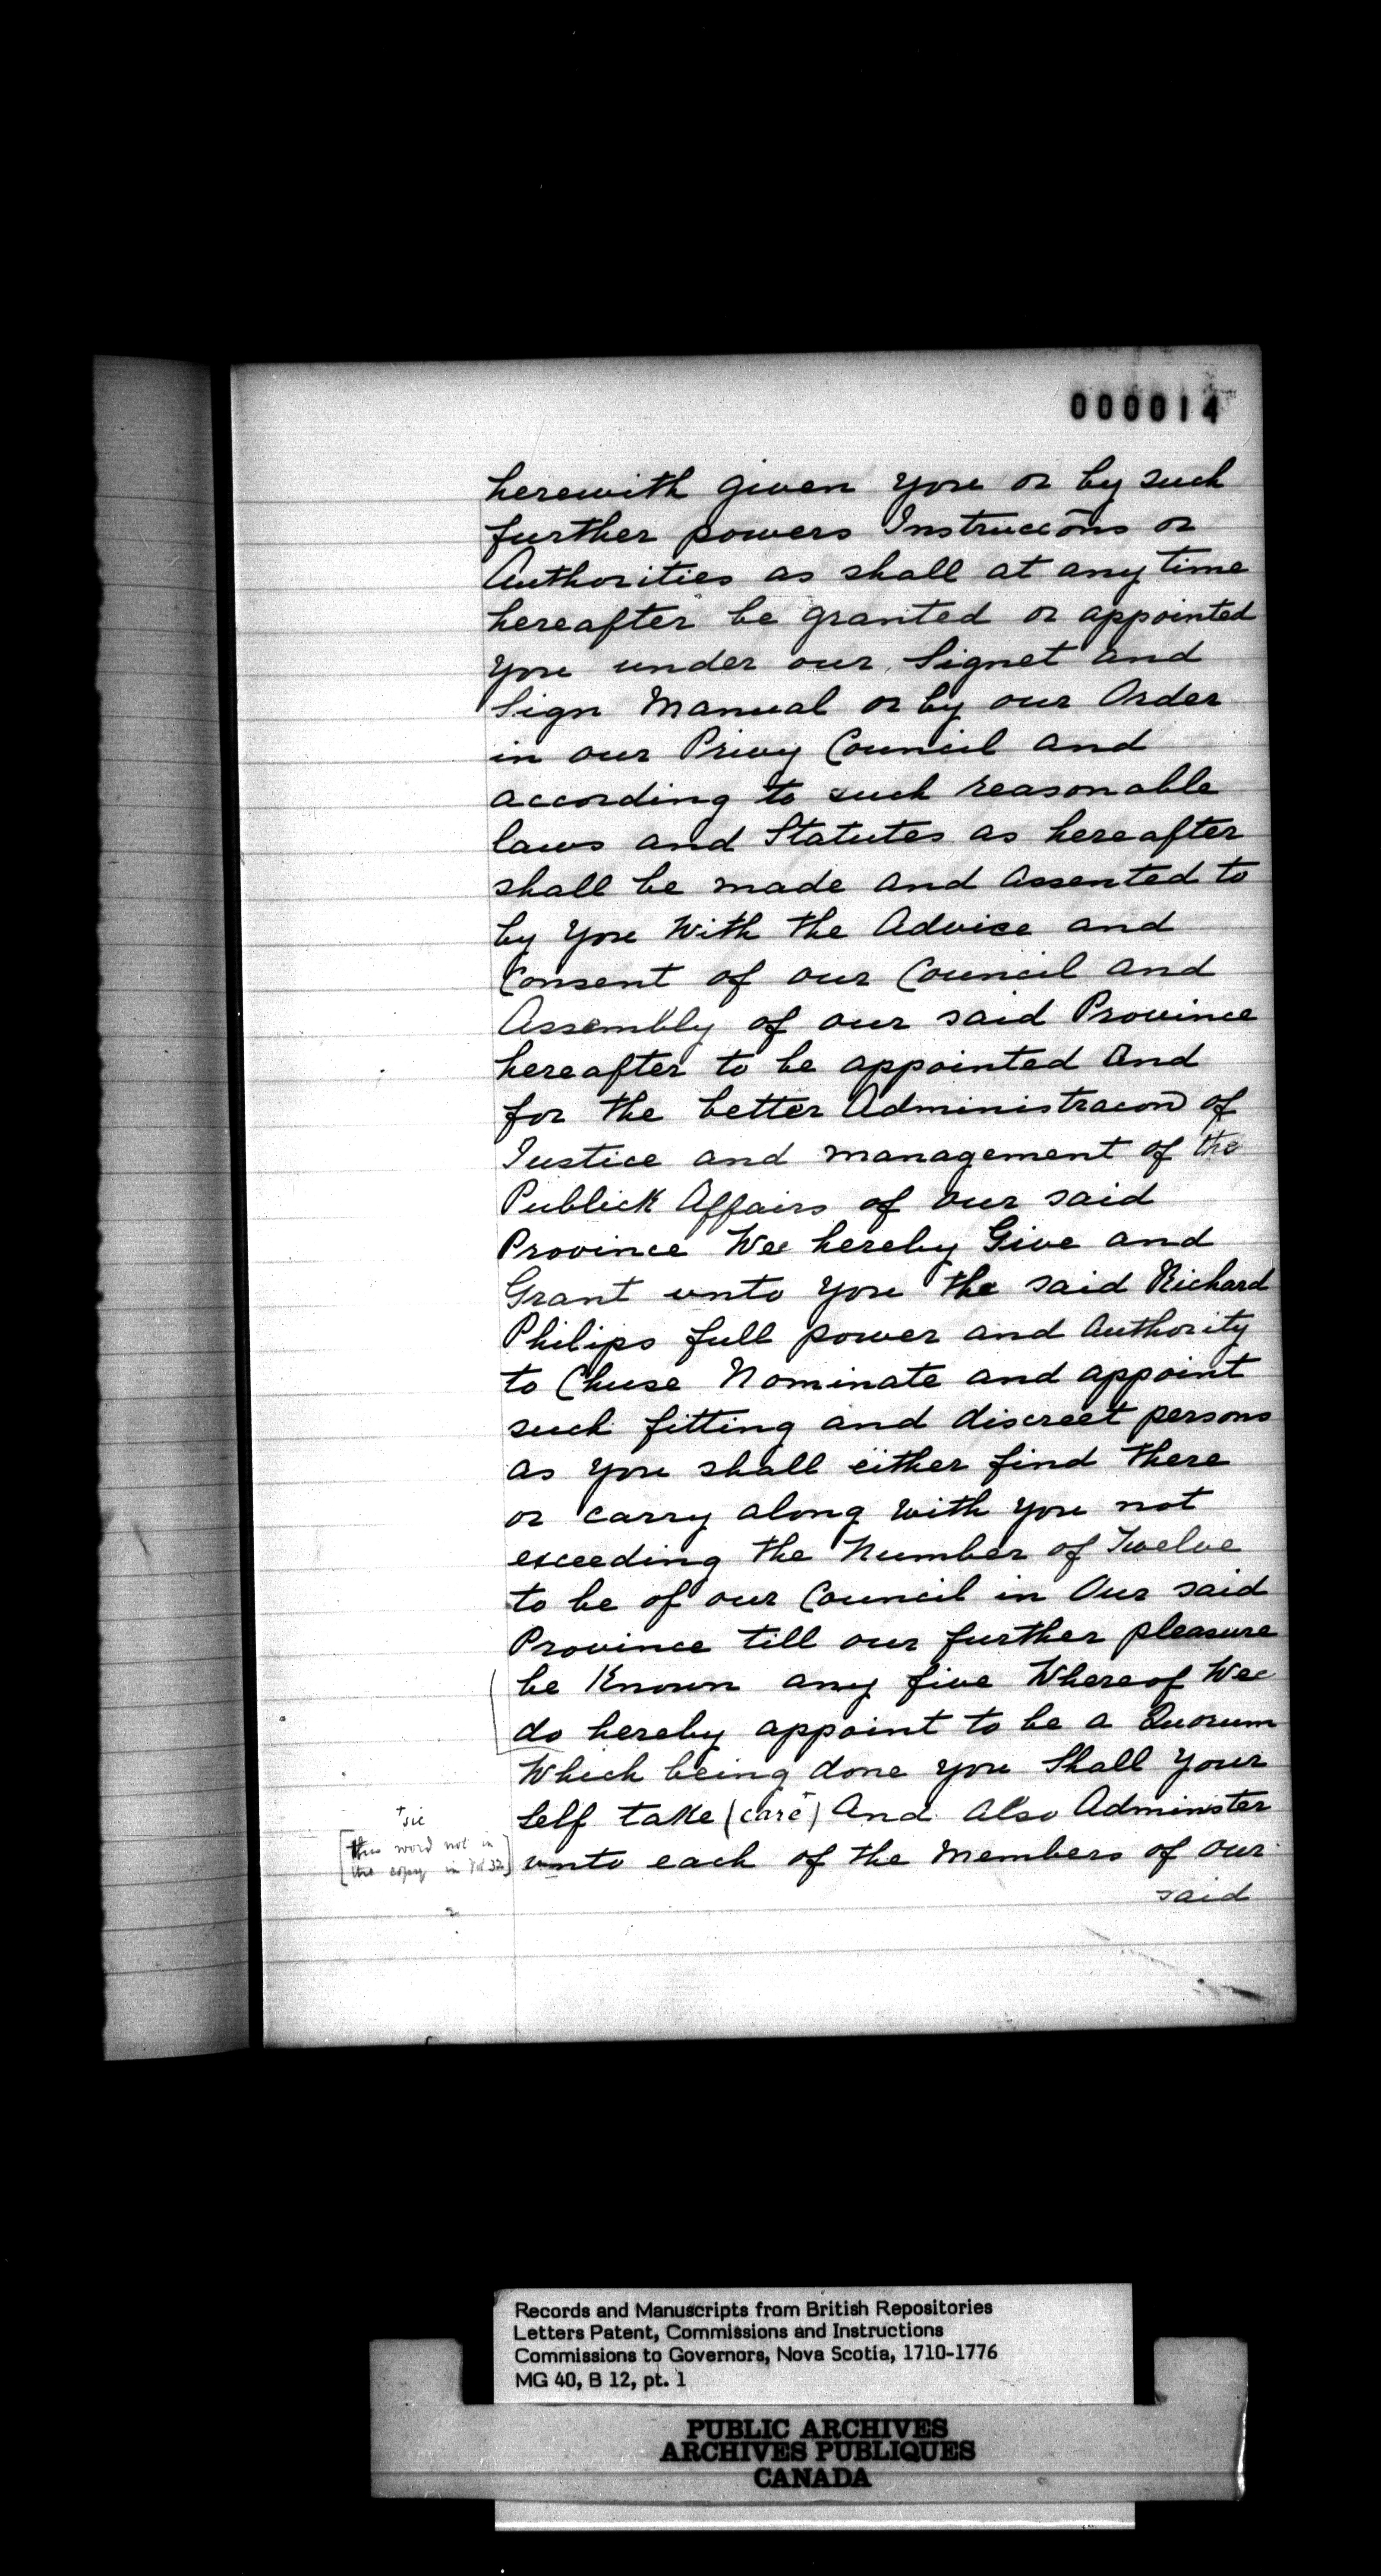 000014
herewith given you or by such
further powers Instruccōns or
Authorities as shall at any time
hereafter be granted or appointed
you under our Signet and
Sign Manual or by our Order
in our Privy Council and
according to such reasonable
laws and Statutes as hereafter
shall be made and assented to
by you With the Advice and
Consent of our Council and
Assembly of our said Province
hereafter to be appointed And
for the better Administracon of
Justice and management of the
Publick Affairs of our said
Province Wee hereby Give and
Grant unto you the said Richard
Philips full power and Authority
to Chuse Nominate and appoint
such fitting and discreet persons
as you shall either find there
or carry along with you not
exceeding the Number of Twelve
to be of our Council in Our said
Province till our further pleasure
be Known any five Whereof Wee
do hereby appoint to be a Quorum
Which being done you Shall Your
Self take (care+) And also Administer
unto each of the Members of our
said
+ sic
[this word not in
the copy in Vol 32]
Records and Manuscripts from British Repositories
Letters Patent, Commissions and Instructions
Commissions to Governors, Nova Scotia, 1710-1776
MG 40, B 12, pt. 1
PUBLIC ARCHIVES
ARCHIVES PUBLIQUES
CANADA